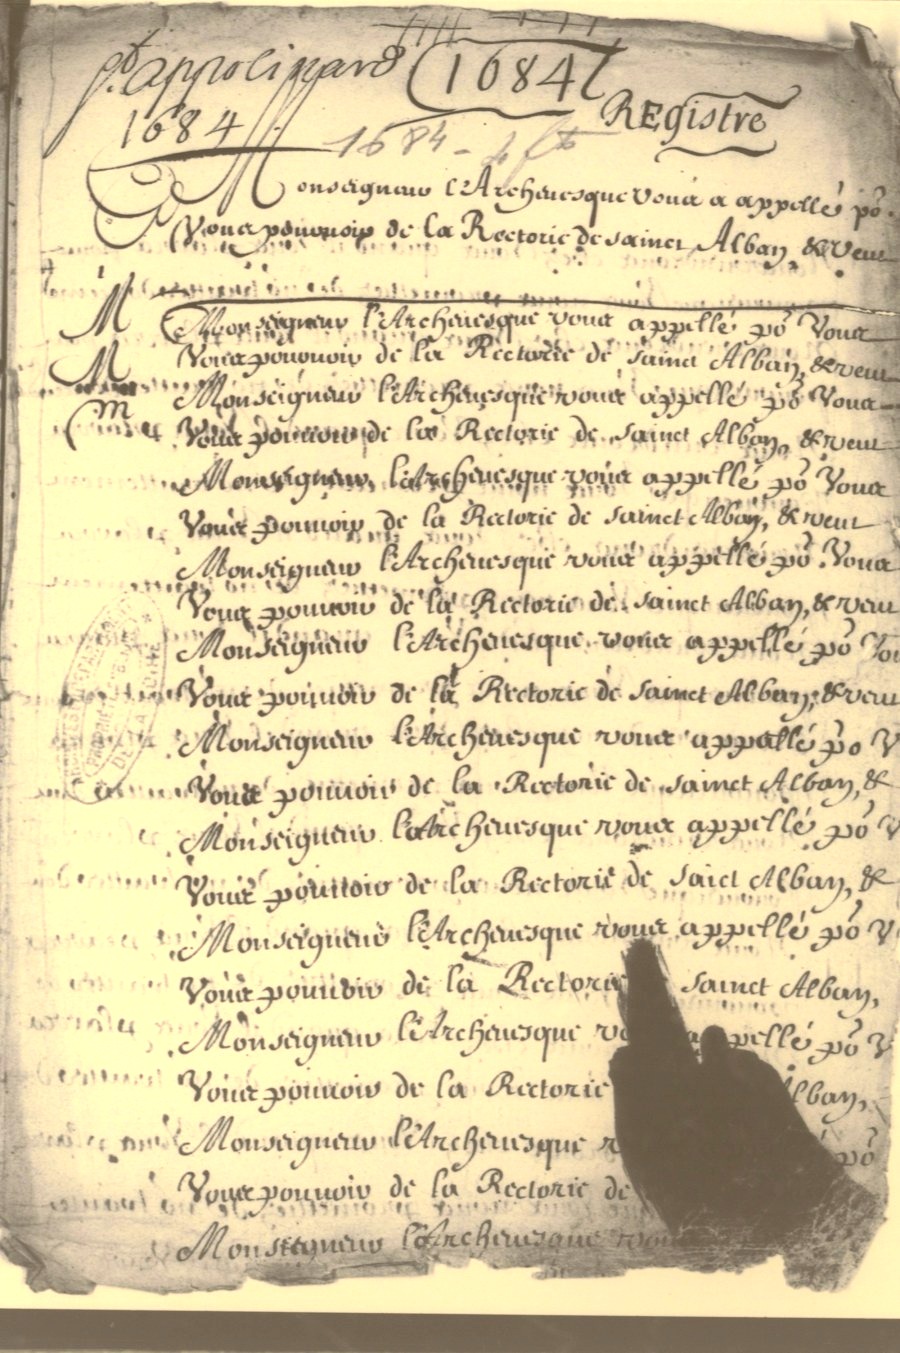 St appolinard
1684
REgistre
1684
1684 -
Monseigneur l'Archeuesque Vous a appellé po.
Vous pouuoir de la Rectorie de sainct Alban, & Veut
M
Monseigneur l'Archeuesque vous appellé po Vous
M
Vous pouuoir de la Rectorie de sainct Alban, & veut
Monseigneur l'Archeuesque vous appellé po Vous
m
Vous pouuoir de la Rectorie de sainct Alban, & veut
Monseigneur l'Archeuesque vous appellé po Vous
Vous pouuoir de la Rectorie de sainct Alban, & veut
Monseigneur l'Archeuesque vous appellé po Vous
Vous pouuoir de la Rectorie de sainct Alban, & veut
Monseigneur l'Archeuesque vous appellé po Vou
Vous pouuoir de la Rectorie de sainct Alban, & veut
Monseigneur l'Archeuesque vous appellé po V
Vous pouuoir de la Rectorie de sainct Alban, &
Monseigneur l'Archeuesque vous appellé po V
Vous pouuoir de la Rectorie de saict Alban, &
Monseigneur l'Archeuesque vous appellé po V
Vous pouuoir de la Rectorie sainct Alban,
Monseigneur l'Archeuesque vo appellé po V
Vous pouuoir de la Rectorie Alban,
Monseigneur l'Archeuesque v é po
Vous pouuoir de la Rectorie de
Monseigneur l'Archeuesque vou